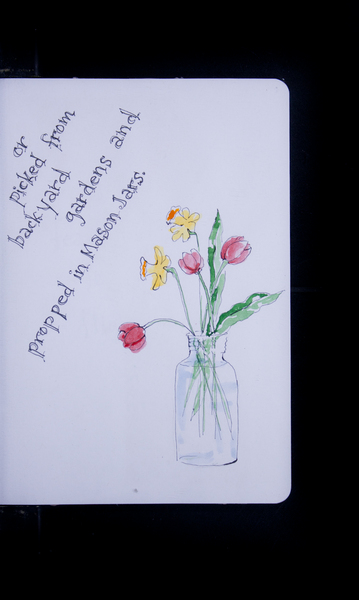 or
picked from
backyard
gardens and
propped in Mason Jars.